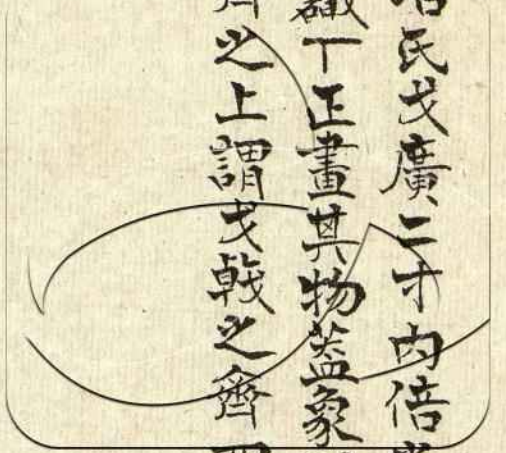 氏戈廣二寸内倍
丁正畫其物蓋象
之上謂戈戟之齊